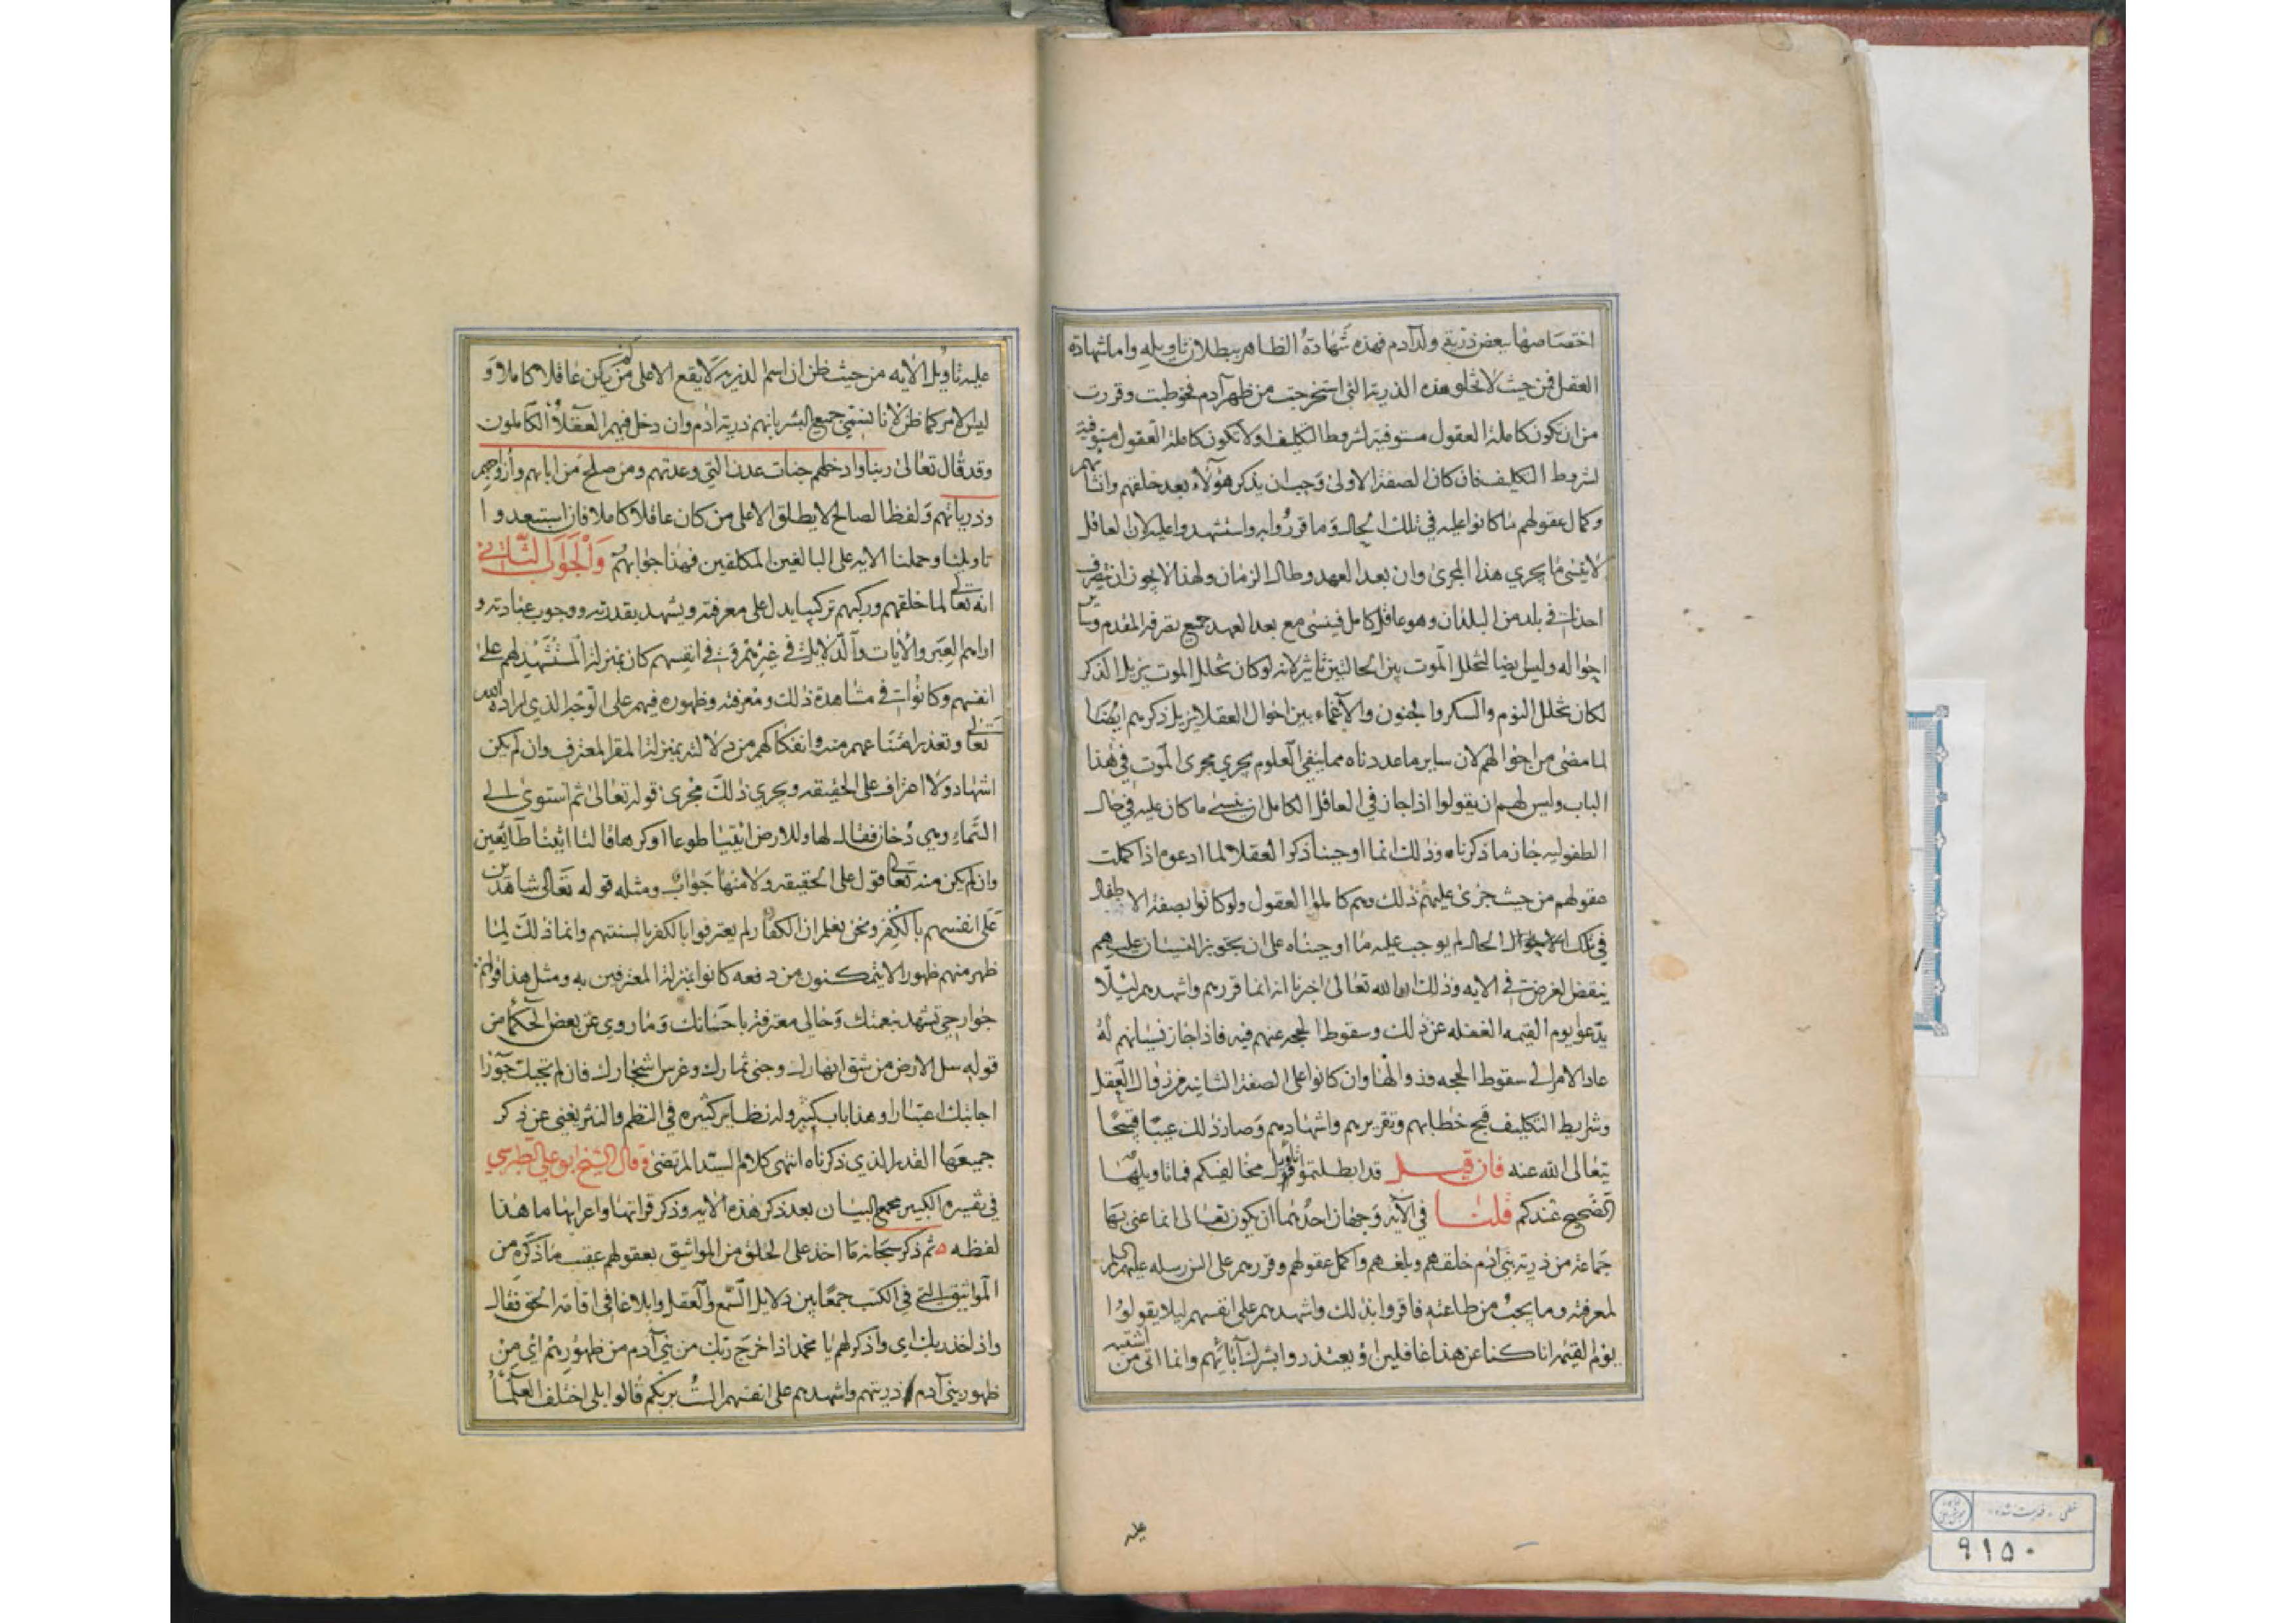 اختصاصها ببعض ذرية ولد آدم فهذه شهادة الظاهر ببطلان تاويله واما شهادة
العقل فمن حيث لا تخلو هذه الذرية التي استخرجت من ظهر آدم فخوطبت وقررت
من ان تكون كاملة العقول مستوفية لشروط التكليف او لا تكون كاملة العقول مستوفية
لشروط التكليف فان كان الصفة الاولى وجب ان يذكر هؤلاء بعد خلقهم وانشائهم
وكمال عقولهم ما كانوا عليه في تلك الحال وما قرروا به واستشهدوا عليه لان العاقل
لا ينسى ما يجري هذا المجرى وان بعد العهد وطال الزمان ولهذا لا يجوز ان يتصرف
احدنا في بلد من البلدان وهو عاقل كامل فينسى مع بعد العهد جميع تصرفه المقدم وساير
احواله وليس ايضا لتخلل الموت بين الحالتين تاثير لانه لو كان تخلل الموت يزيل الذكر
لكان تخلل النوم والسكر والجنون والاغماء بين احوال العقلا يزيل ذكرهم ايضا
لما مضى من احوالهم لان ساير ما عددناه مما ينفي العلوم يجري مجرى الموت في هذا
الباب وليس لهم ان يقولوا اذا جاز في العاقل الكامل ان ينسى ما كان عليه في حال
الطفولية جاز ما ذكرناه وذلك انما اوجبنا ذكر العقلا لما ادعوه اذا كملت
عقولهم من حيث جرى عليهم ذلك وهم كاملوا العقول ولو كانوا بصفة الاطفال
في تلك الحال لم يوجب عليه ما اوجبناه على ان تجويز النسيان عليهم
ينقض الغرض في الايه وذلك ان الله تعالى اخبرنا انه انما قررهم واشهدهم ليلا
يدعوا يوم القيمه الغفله عن ذلك وسقوط الحجه عنهم فيه فاذا جاز نسيانهم له
عاد الامر الى سقوط الحجه وزوالها وان كانوا على الصفة الثانيه من زوال العقل
وشرايط التكليف قبح خطابهم وتقريرهم واشهادهم وصار ذلك عبثا قبيحا
يتعالى الله عنه فان قيل قد ابطلتم تاويل مخالفيكم فما تاويلها
الصحيح عندكم قلنا في الآية وجهان احدهما ان يكون تعالى انما عنى بها
جماعة من ذرية بني آدم خلقهم وبلغهم واكمل عقولهم وقررهم على السن رسله عليهم السلم
لمعرفته وما يجب من طاعته فاقروا بذلك واشهدهم على انفسهم ليلا يقولوا
يوم القيمة انا كنا عن هذا غافلين او يعتذروا بشرك آبائهم وانما اتى من اشتبه
عليه
عليه تاويل الايه من حيث ظن ان اسم الذرية لا يقع الا على من لم يكن عاقلا كاملا و
ليس الامر كما ظن لانا نسمي جميع البشر بانهم ذرية آدم وان دخل فيهم العقلاء الكاملون
وقد قال تعالى ربنا وادخلهم جنات عدن التي وعدتهم ومن صلح من ابائهم وازواجهم
وذرياتهم ولفظ الصالح لا يطلق الا على من كان عاقلا كاملا فان استبعدوا
تاويلنا وحملنا الايه على البالغين المكلفين فهذا جوابهم والجواب الثاني
انه تعالى لما خلقهم وركبهم تركيبا يدل على معرفته ويشهد بقدرته ووجوب عبادته و
اراهم العبر والآيات والدلايل في غيرهم وفي انفسهم كان بمنزلة المشهد لهم على
انفسهم وكانوا في مشاهدة ذلك ومعرفته وظهوره فيهم على الوجه الذي اراده الله
تعالى وتعذر امتناعهم منه وانفكاكهم من دلالته بمنزلة المقر المعترف وان لم يكن
اشهاد ولا اعتراف على الحقيقه ويجري ذلك مجرى قوله تعالى ثم استوى الى
السماء وهي دخان فقال لها وللارض ائتيا طوعا او كرها قالتا اتينا طائعين
وان لم يكن منه تعالى قول على الحقيقه ولا منها جواب ومثله قوله تعالى شاهدين
على انفسهم بالكفر ونحن نعلم ان الكفار لم يعترفوا بالكفر بالسنتهم وانما ذلك لما
ظهر منهم ظهورا لا يتمكنون من دفعه كانوا بمنزلة المعترفين به ومثل هذا قولهم
جوارحي تشهد بنعمتك وحالي معترفة باحسانك وما روي عن بعض الحكماء من
قوله سل الارض من شق انهارك وجنى ثمارك وغرس اشجارك فان لم تجبك حوارا
اجابتك اعتبارا وهذا باب كبير وله نظاير كثيره في النظم والنثر يغني عن ذكر
جميعها القدر الذي ذكرناه انتهى كلام السيد المرتضى وقال الشيخ ابو علي الطبرسي
في تفسيره الكبير مجمع البيان بعد ذكر هذه الايه وذكر قراتها واعرابها ما هذا
لفظه ثم ذكر سبحانه ما اخذ على الخلق من المواثيق بعقولهم عقيب ما ذكره من
المواثيق التي في الكتب جمعا بين دلايل السمع والعقل وابلاغا في اقامة الحق فقال
واذ اخذ ربك اي واذكر لهم يا محمد اذ اخرج ربك من بني آدم من ظهورهم اي من
ظهور بني آدم ذريتهم واشهدهم على انفسهم الست بربكم قالوا بلى اختلف العلماء
خطی - فهرست شده
٩١٥٠